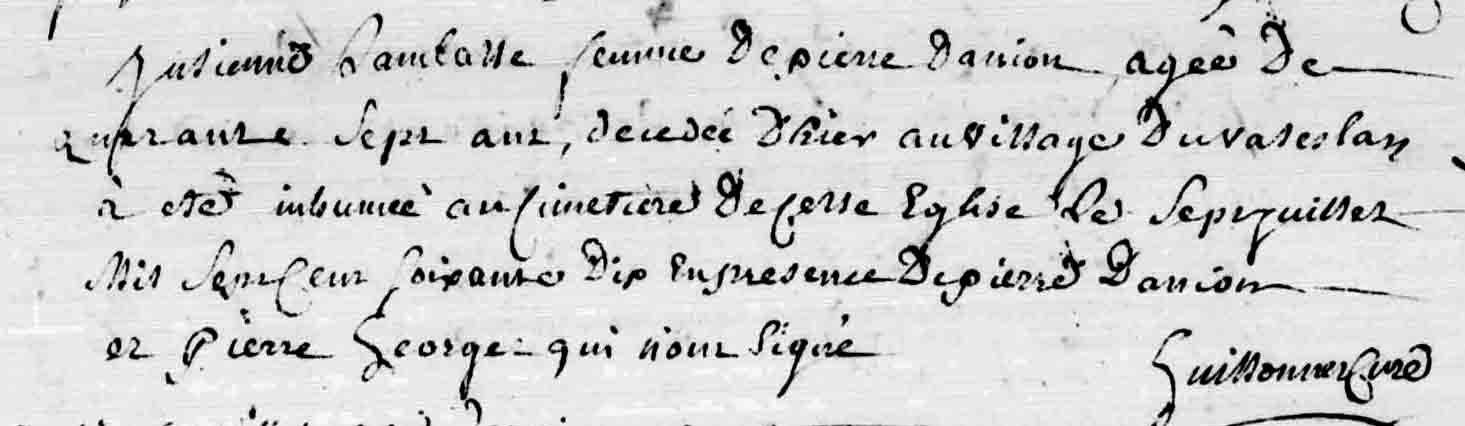 Julienne Lamballe femme de pierre Danion agée de
quarante sept ans, decedée d'hier au village du
à eté inhumée au cimetiere de cette Eglise le sept juillet
Mil sept cent soixante dix en presence de pierre Danion
et pierre George qui n'ont signé
Guillonnet curé